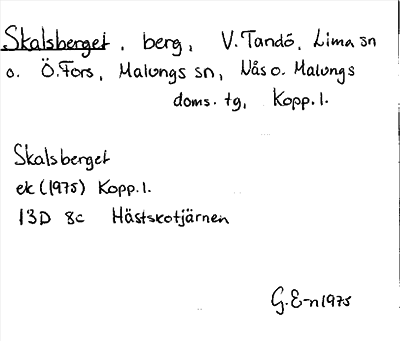 Skalsberget, berg, V. Tandö, Lima sn
o. Ö. Fors, Malungs sn, Nås o. Malungs
doms. tg, Kopp. l.
Skalsberget
ek (1975) Kopp. l.
13D 8c Hästskotjärnen
G. E-n 1975